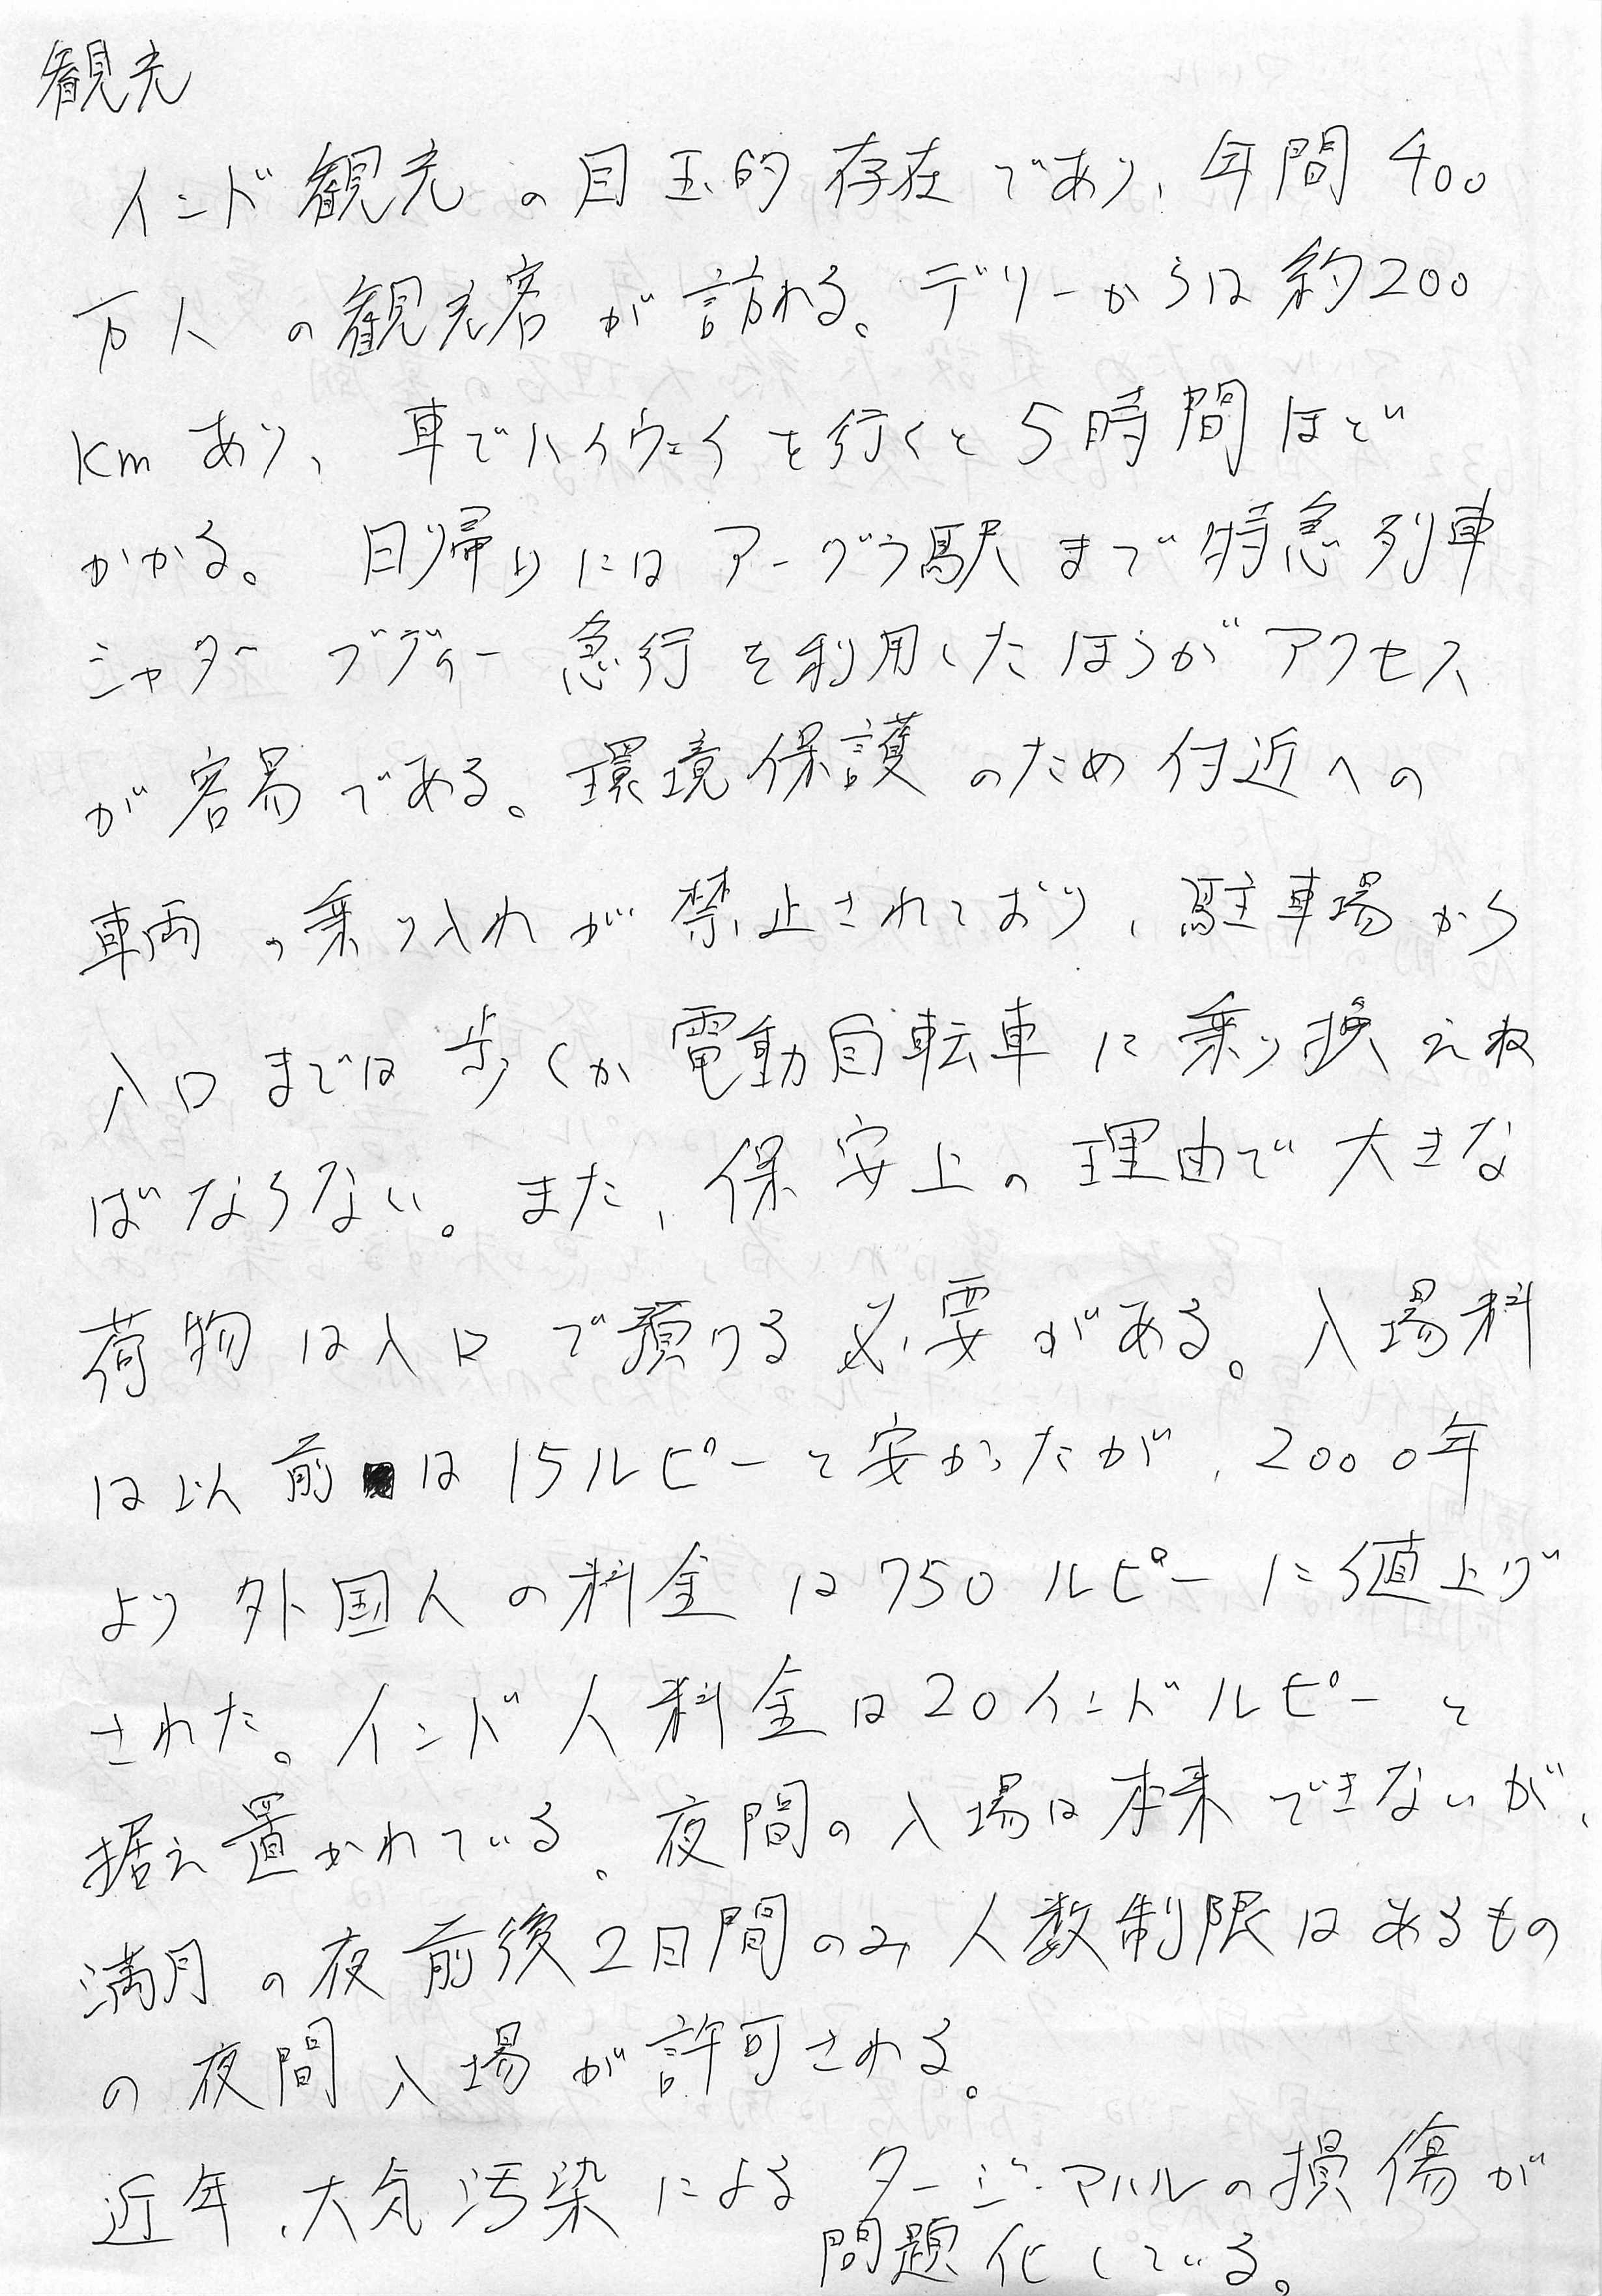 観光
インド観光の目玉的存在であり、年間400
万人の観光客が訪れる。デリーからは約200
kmあり、車でハイウェイを行くと5時間ほど
かかる。日帰りにはアーグラ駅まで特急列車
シャターブディー急行を利用したほうがアクセス
が容易である。環境保護のため付近への
車両の乗り入れが禁止されており、駐車場から
入口までは歩くか電動自転車に乗り換えね
ばならない。また、保安上の理由で大きな
荷物は入口で預ける必要がある。入場料
は以前は15ルピーと安かったが、2000年
より外国人の料金は750ルピーに値上げ
された。インド人料金は20インドルピーと
据え置かれている。夜間の入場は本来できないが、
満月の夜前後2日間のみ人数制限はあるもの
の夜間入場が許可される。
近年、大気汚染によるタージ・マハルの損傷が
問題化している。